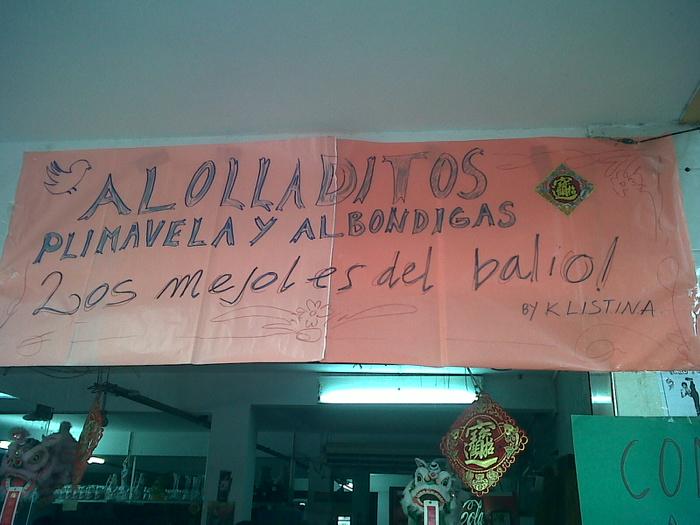 ALOLLADITOS
PLIMAVELA Y ALBONDIGAS
Los mejoles del balio!
BY KLISTINA
CO